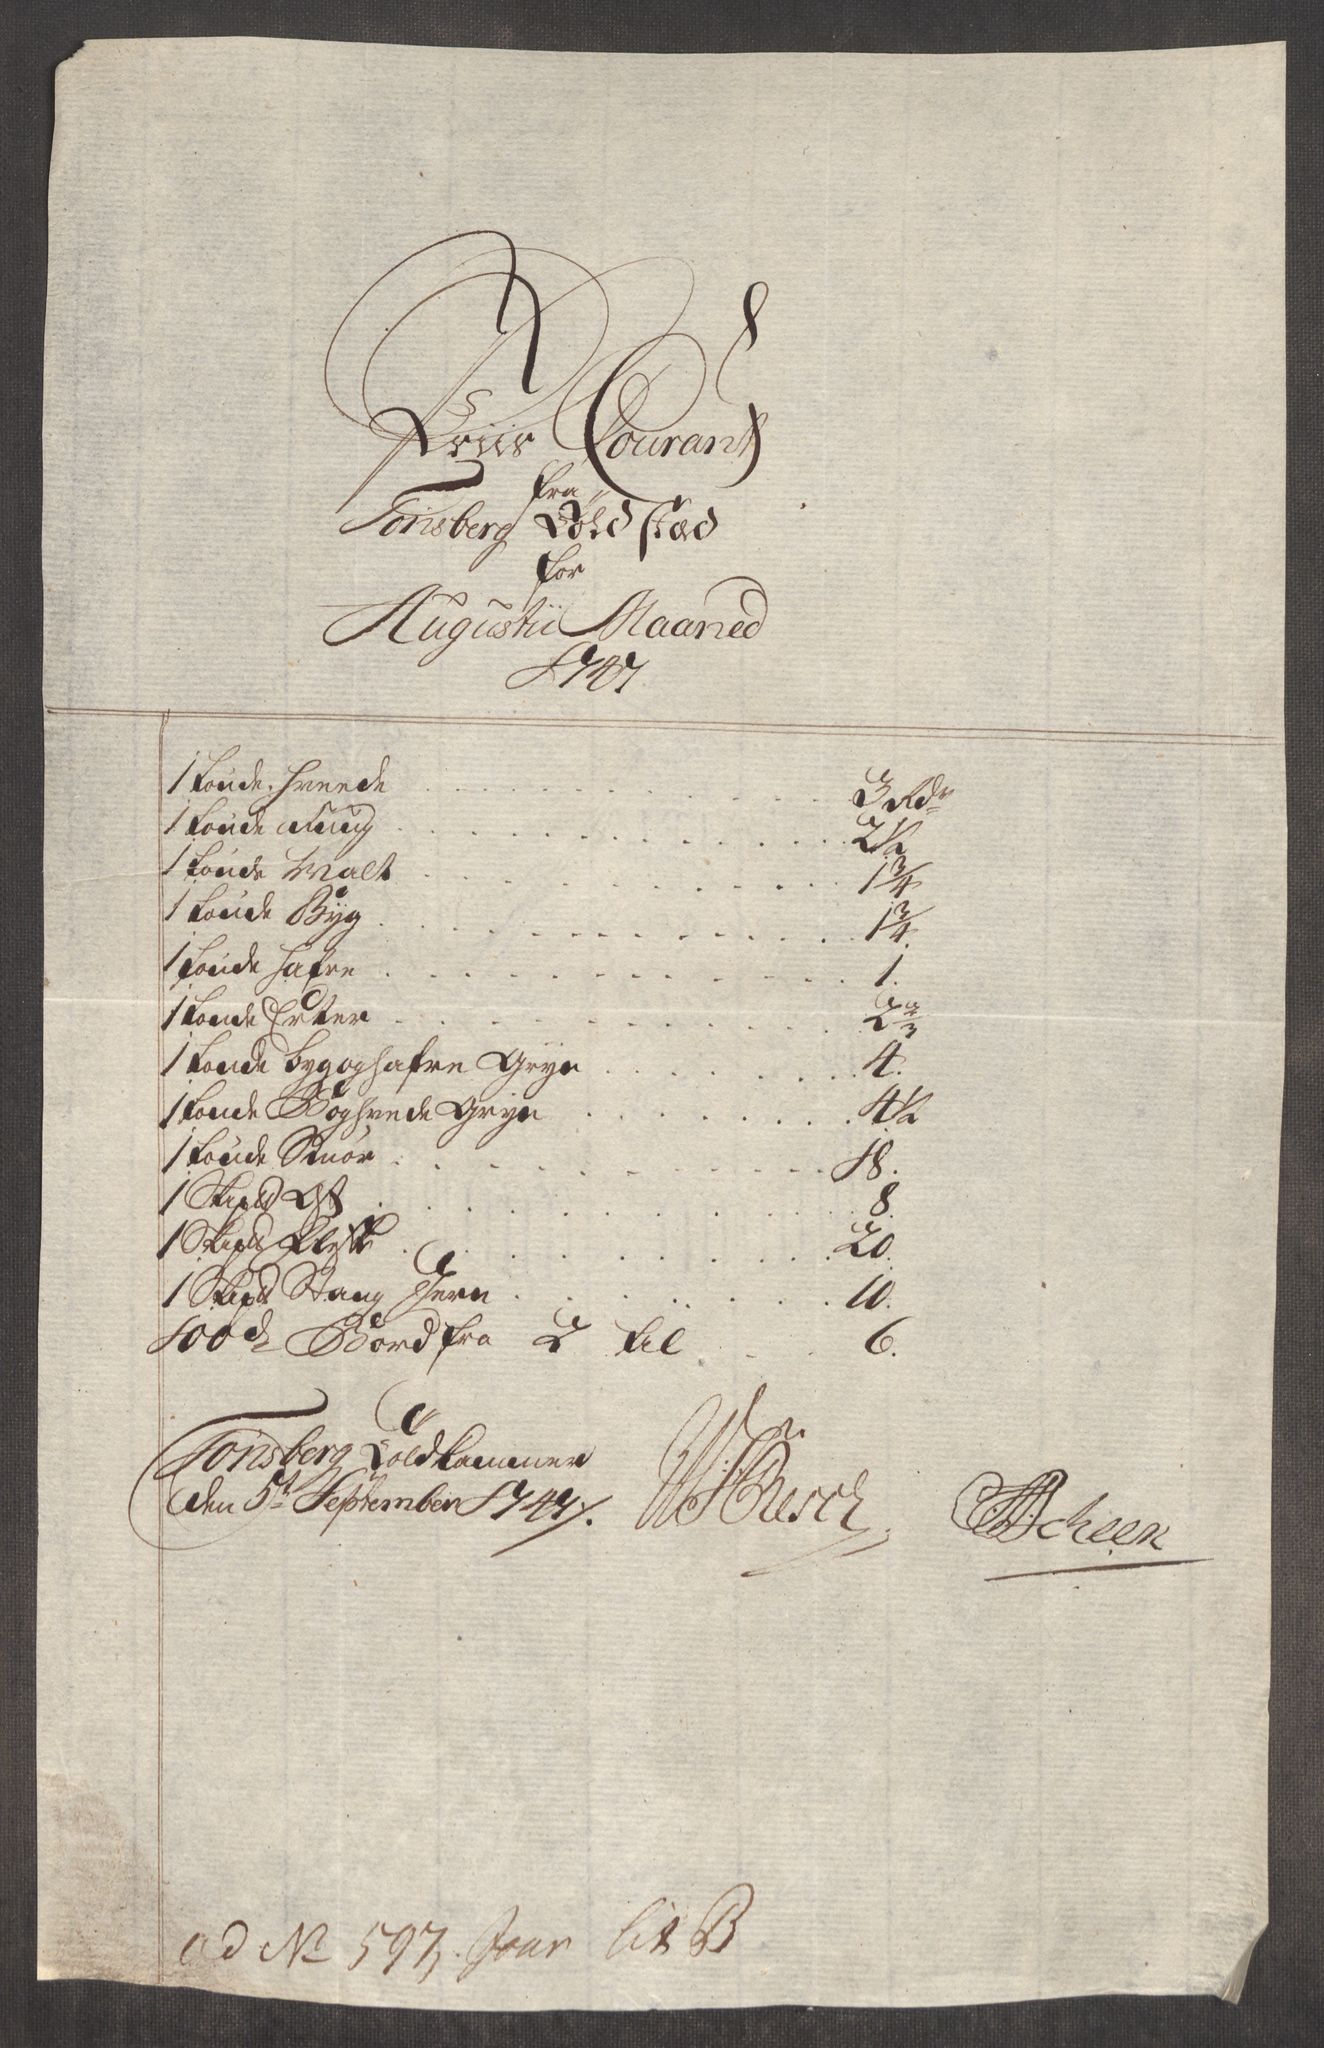 Priis Courant
fra
Tønsberg Told stæd
for
Augustii Maaned
1747
1 tønde hveede 3 Rdr
1 tønde Rúúg 2 1/2
1 tønde Malt 1 3/4
1 tønde Byg 1 3/4
1 tønde hafre 1.
1 tønde Erter 2 2/3
1 tønde byg og hafre Gryn 4.
1 tønde Boghvede Gryn 4 1/2
1 tønde Smør 18.
1 Skipd Ost 8.
1 Skipd Flesk 20.
1 Skipd Stang Jern 10.
100de Bord fra 2 til 6.
Tønsberg Toldkammer
den 5t September 1747.
Resch Scheen
ad No 597, lit B